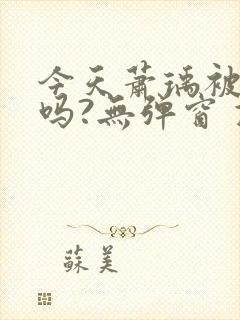 今天蕭瑀被
吗?無弹窗
蘇美